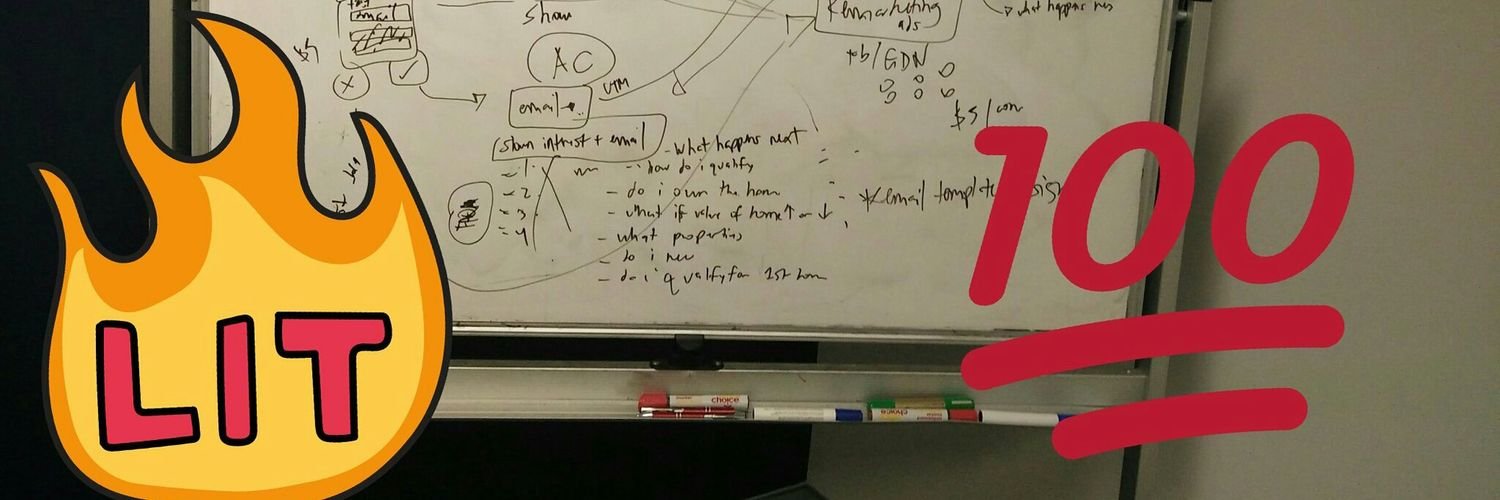 email
Show
Remarketing
ads
what happens
AC
fb/GDN
UTM
email
$5/con
show intrist + email
- what happens next
- 1
- how do i qualify
- 2
- do i own the home
* email template
- 3
- what if value of home ↑ or ↓
- 4
- what properties
- do i
- do i qualify for 1st home
LIT
100
choice
choice